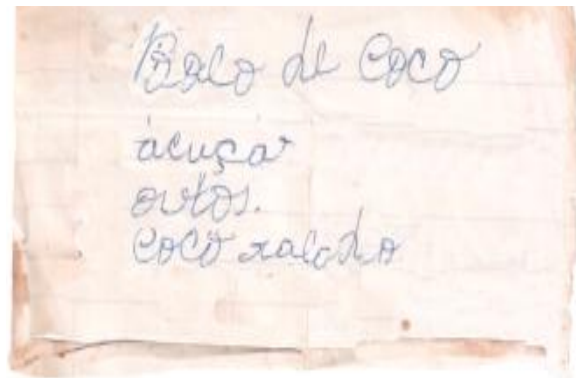 Bolo de Coco
acuçar
ovtos.
coco ralado